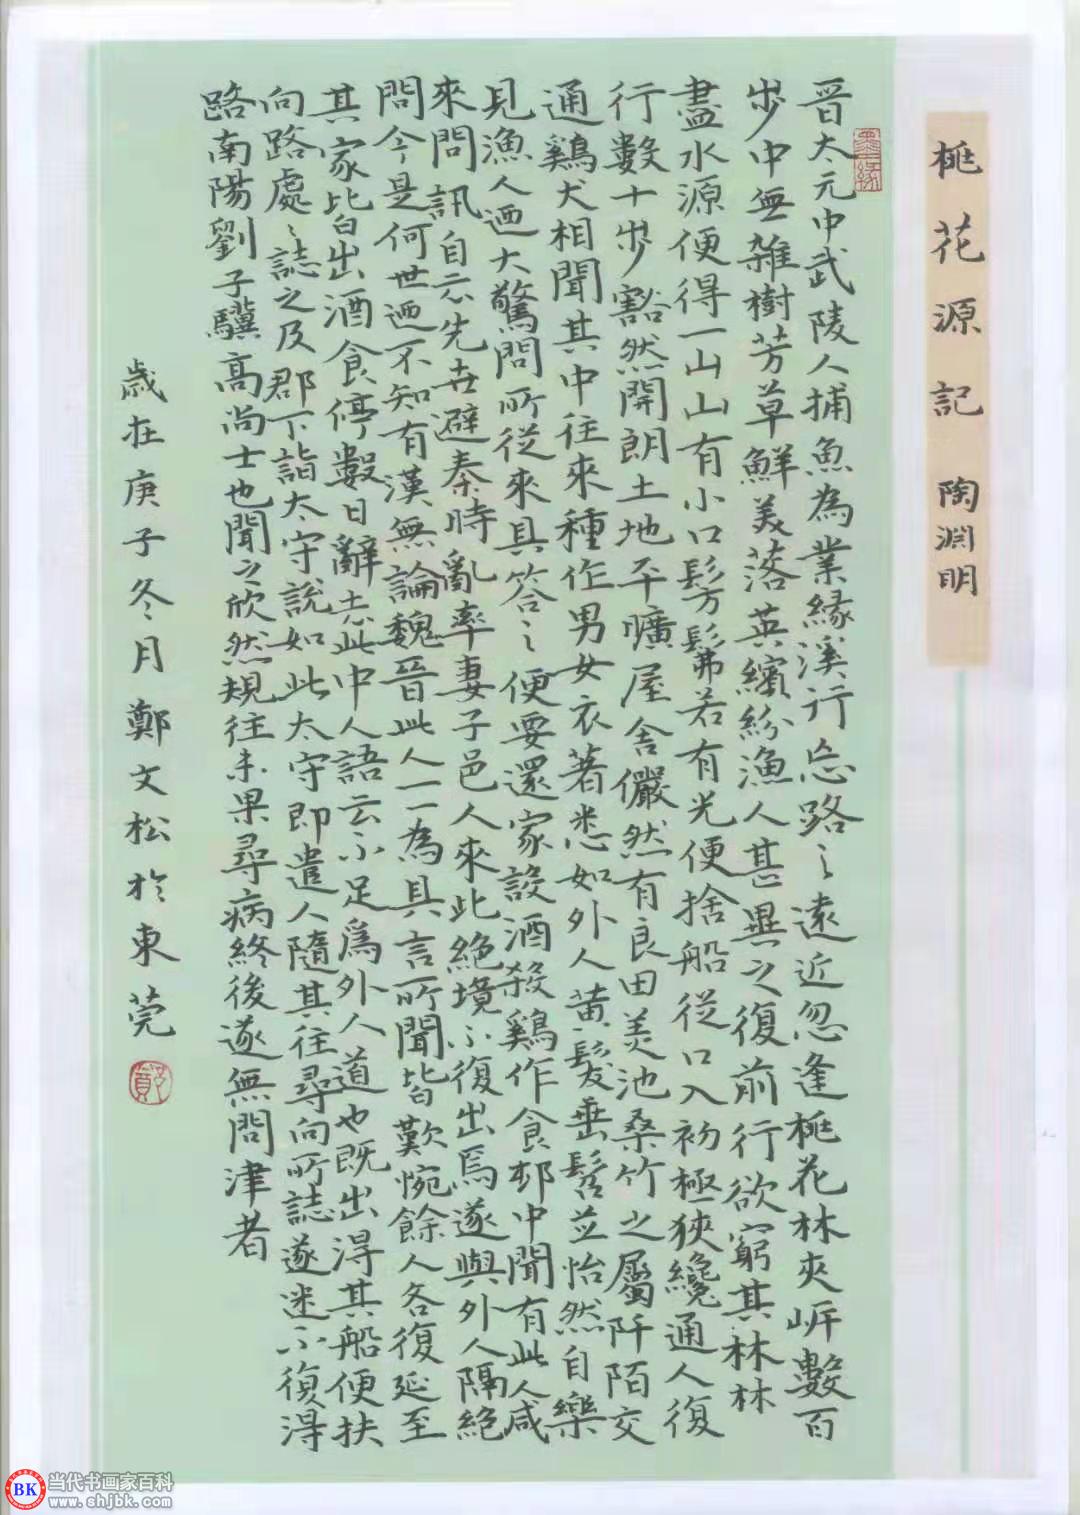 桃花源記 陶淵明
墨緣
晉太元中武陵人捕魚為業緣溪行忘路之遠近忽逢桃花林夾岸數百
步中無雜樹芳草鮮美落英繽紛漁人甚異之復前行欲窮其林林
盡水源便得一山山有小口髣髴若有光便捨船從口入初極狹纔通人復
行數十步豁然開朗土地平曠屋舍儼然有良田美池桑竹之屬阡陌交
通鷄犬相聞其中往來種作男女衣著悉如外人黃髮垂髫並怡然自樂
見漁人迺大驚問所從來具答之便要還家設酒殺鷄作食邨中聞有此人咸
來問訊自云先世避秦時亂率妻子邑人來此絕境不復出焉遂與外人隔絕
問今是何世迺不知有漢無論魏晉此人一一為具言所聞皆歎惋餘人各復延至
其家皆出酒食停數日辭去此中人語云不足為外人道也既出得其船便扶
向路處〻誌之及郡下詣太守說如此太守即遣人隨其往尋向所誌遂迷不復得
路南陽劉子驥高尚士也聞之欣然規往未果尋病終後遂無問津者
歲在庚子冬月鄭文松於東莞
鄭
BK 当代书画家百科
www.shjbk.com